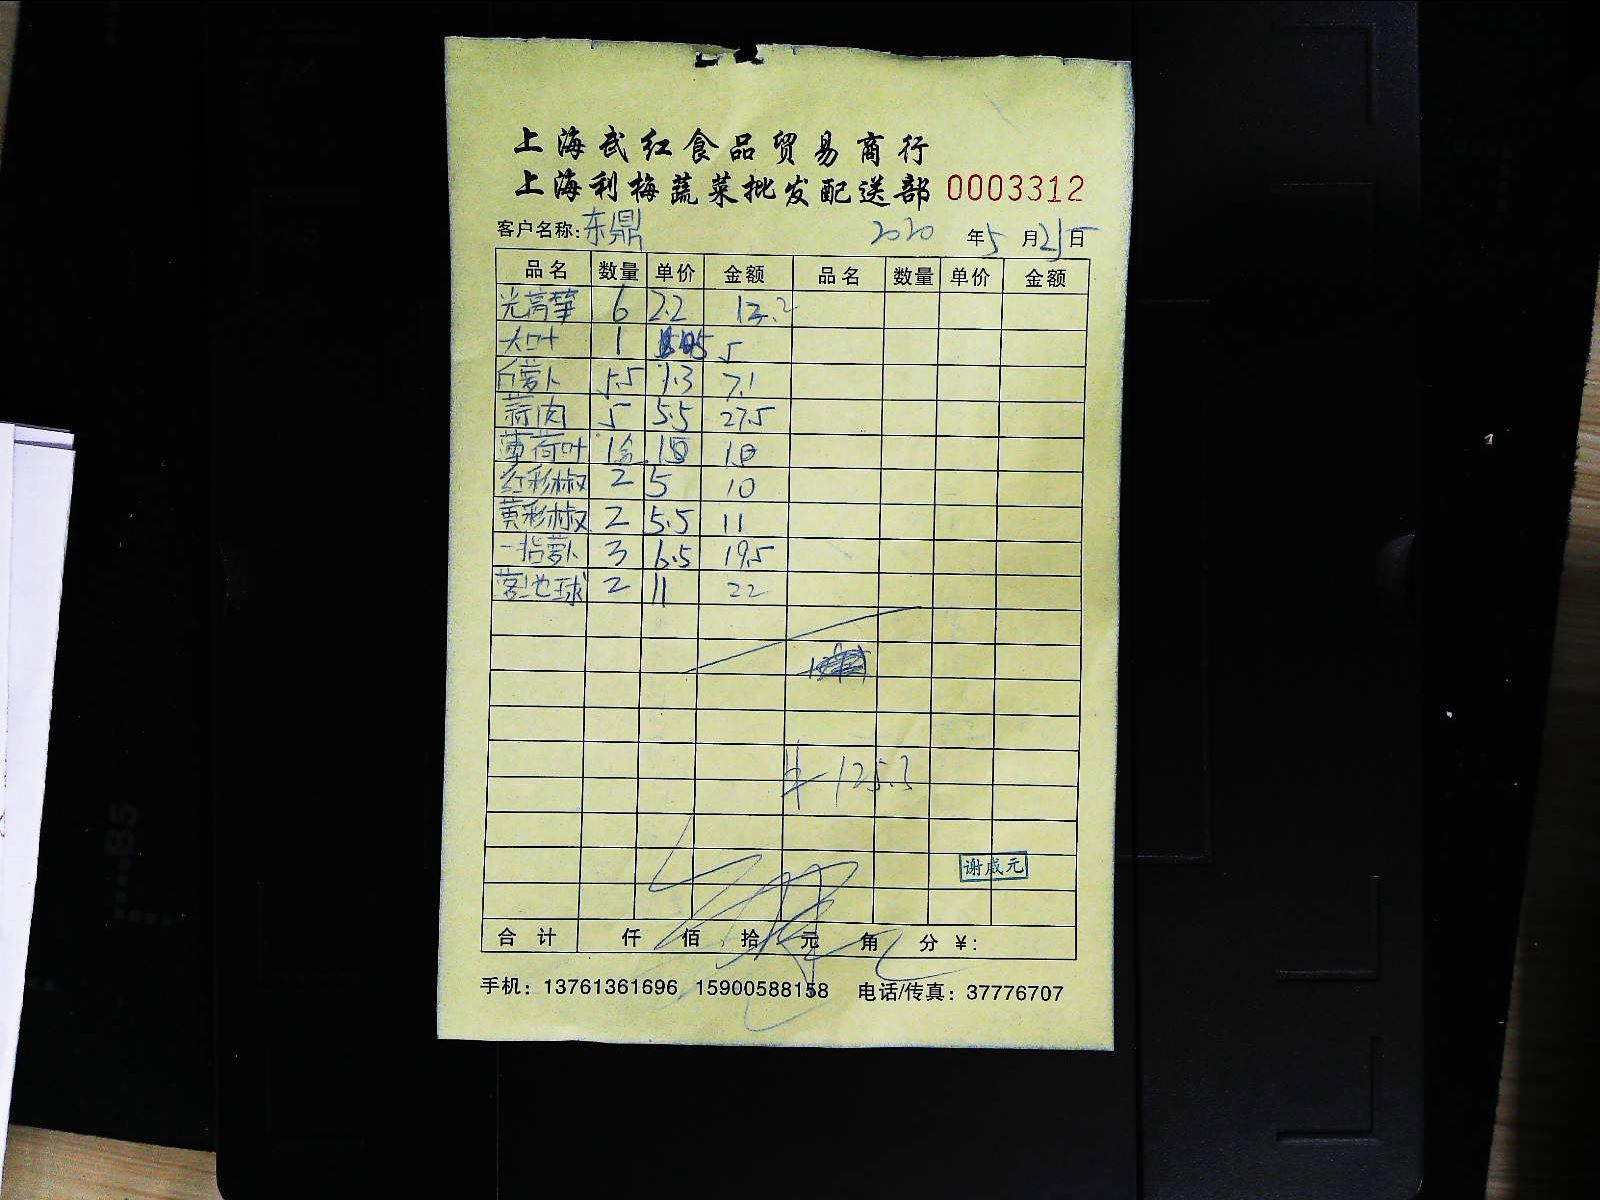 上海武红食品贸易商行
上海利梅蔬菜批发配送部 0003312
客户名称:东鼎 2020 年5月25日
品名 数量 单价 金额 品名 数量 单价 金额
光高笋 6 2.2 13.2
大叶 1 5 5
白萝卜 5.5 1.3 7.1
蒜肉 5 5.5 27.5
薄荷叶 1盒 10 10
红彩椒 2 5 10
黄彩椒 2 5.5 11
一指萝卜 3 6.5 19.5
落地球 2 11 22
¥125.3
谢威元
合计 仟 佰 拾 元 角 分 ¥:
手机：13761361696 15900588158 电话/传真：37776707
B5